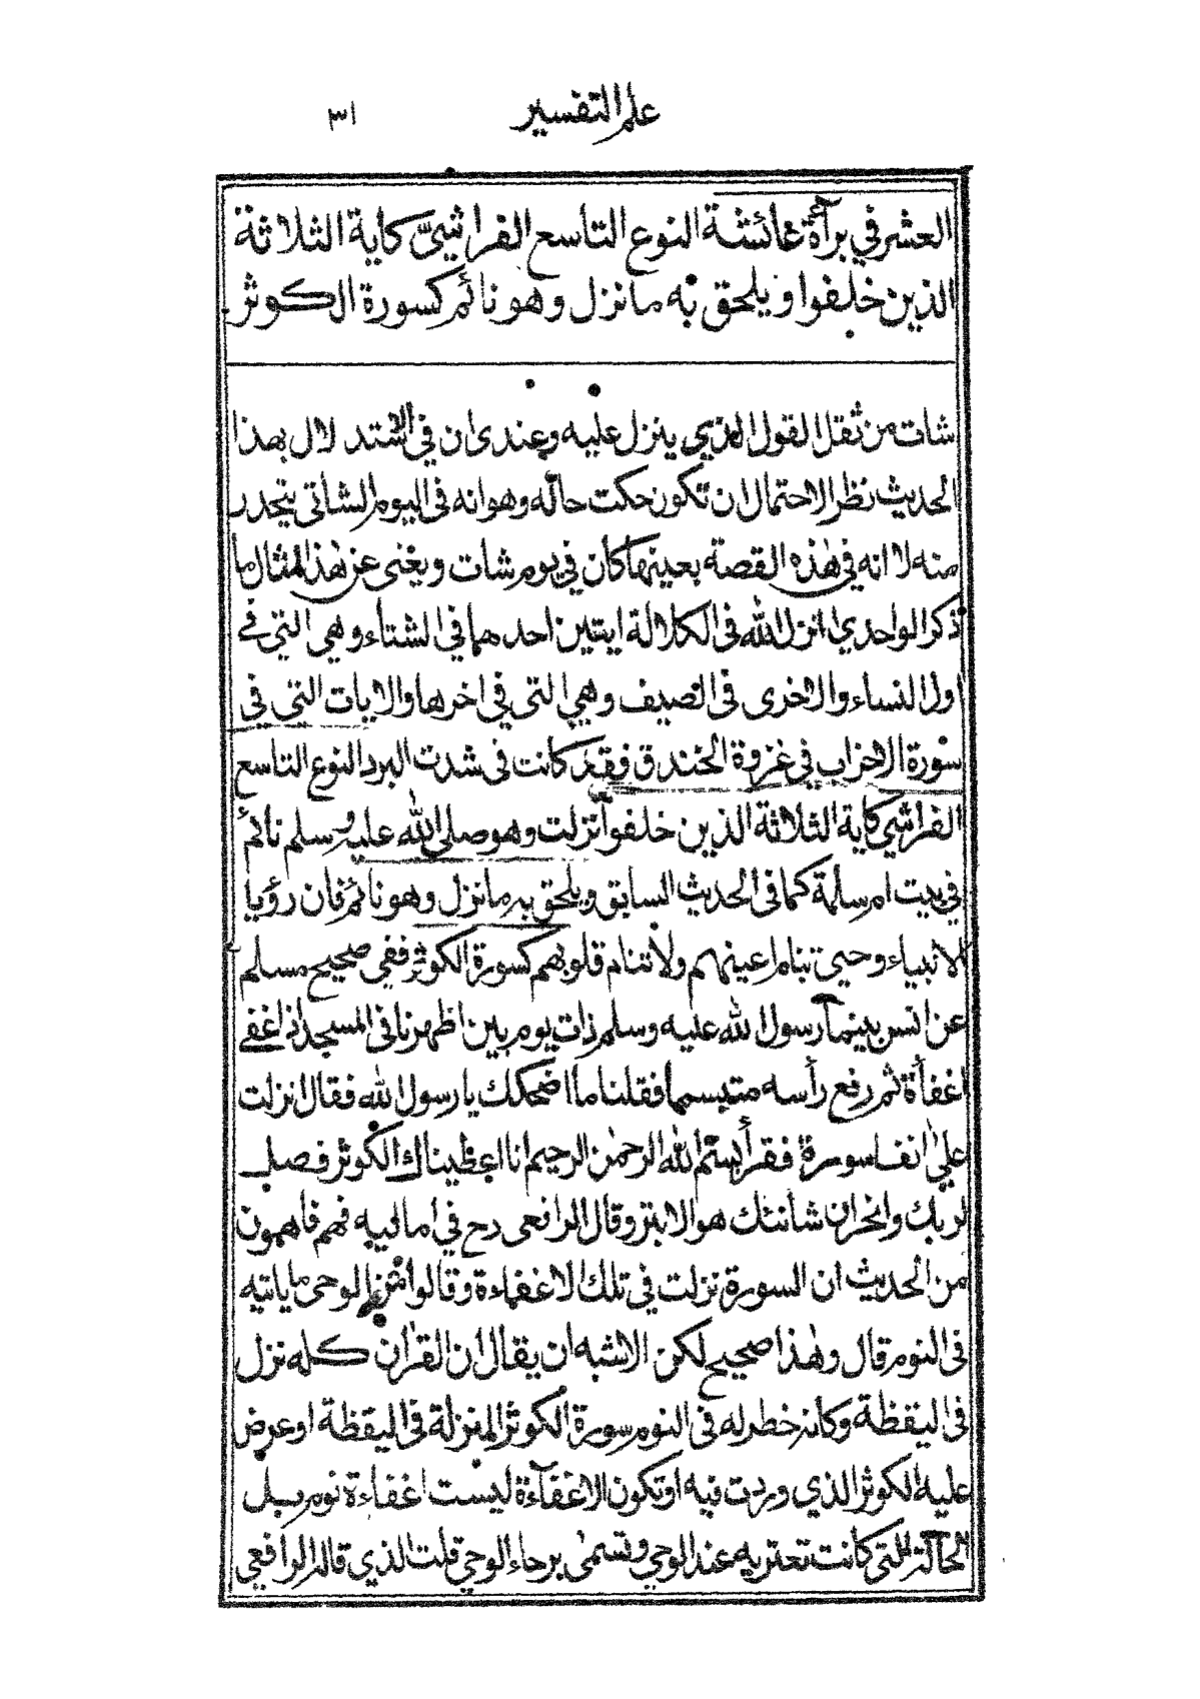 علم التفسير ٣١
العشر في برآءة عائشة النوع التاسع الفراشيّ كاية الثلاثة
الذين خلفوا ويلحق به ما نزل وهو نائم كسورة الكوثر
شات من ثقل القول الذي ينزل عليه وعندى ان في الاستد لال بهذا
الحديث نظر الاحتمال ان تكون حكت حاله وهو انه فى اليوم الشاتى يتحدر
منه لا انه في هذه القصة بعينها كان في يوم شات ويغنى عن هذا المثال ما
ذكر الواحدي انزل الله فى الكلالة ايتين احدهما في الشتاء وهي التي في
اول النساء والاخرى فى الصيف وهي التى في اخرها والايات التي في
سورة الاحزاب في غزوة الخندق فقد كانت فى شدت البرد النوع التاسع
الفراشي كاية الثلاثة الذين خلفوا نزلت وهو صلى الله عليه وسلم نائم
في بيت ام سلمة كما فى الحديث السابق ويلحق به ما نزل وهو نائم فان رؤيا
الانبياء وحي تنام اعينهم ولا تنام قلوبهم كسورة الكوثر ففي صحيح مسلم
عن انس بينما رسول الله عليه وسلم ذات يوم بين اظهرنا فى المسجد اذ اغفى
اغفاءة ثم رفع رأسه متبسما فقلنا ما اضحكك يا رسول الله فقال انزلت
علي انفا سورة فقرأ بسم الله الرحمن الرحيم انا اعطيناك الكوثر فصل
لربك وانحر ان شانئك هو الابتر وقال الرافعى رح في اماليه فهم فاهمون
من الحديث ان السورة نزلت في تلك الاغفاءة وقالوا من الوحى ما ياتيه
فى النوم قال وهذا صحيح لكن الاشبه ان يقال ان القران كله نزل
فى اليقظة وكانه خطر له فى النوم سورة الكوثر المنزلة فى اليقظة او عرض
عليه الكوثر الذي وردت فيه او تكون الاغفآءة ليست اغفاءة نوم بل
الحالة التى كانت تعتريه عند الوحي وتسمى برحاء الوحي قلت الذي قاله الرافعي